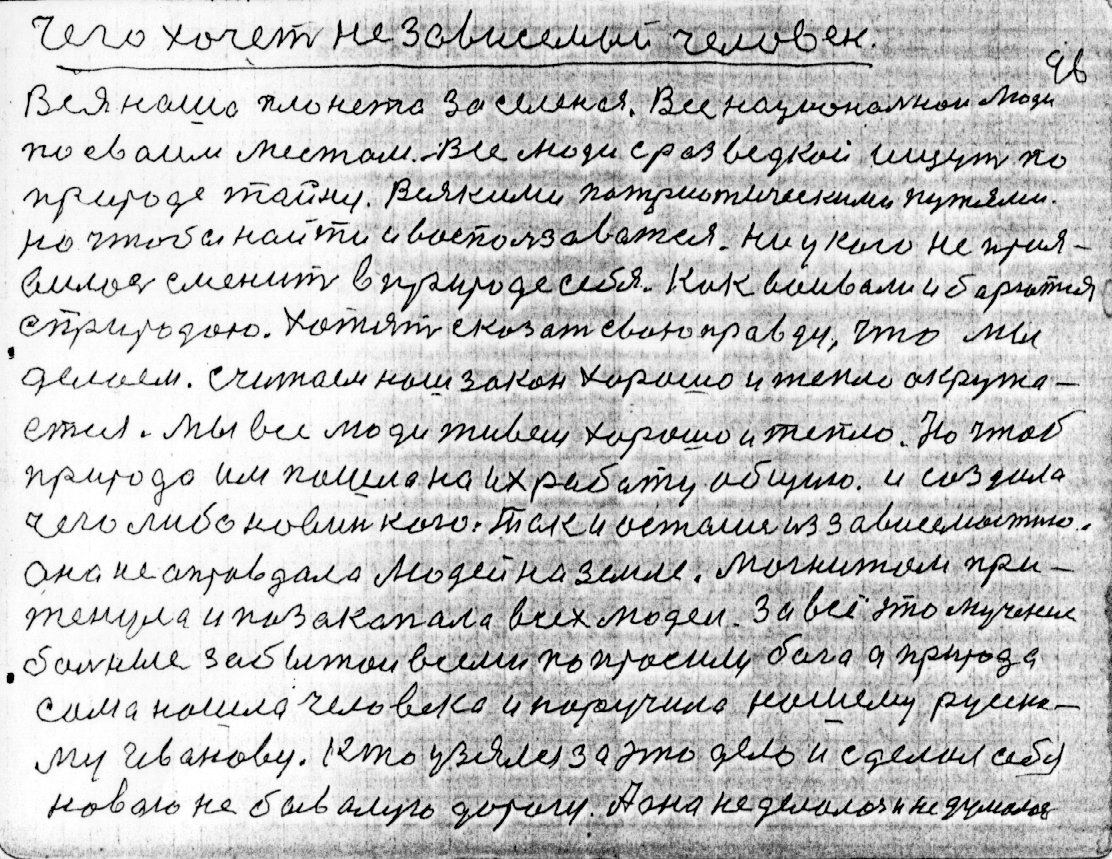 Чего хочет независемый человек.
96
Вся наша планета заселенся. Все национальнои люди
по сваим местам. Все люди с разведкой ищут по
природе тайну. Всякими потриотическими путями.
но чтобы найти и воспользоватся. ни у кого не прия-
вилос сменит в природе себя. Как воивали и барются
с природаю. Хотят сказат сваю правду, что мы
делаем. считаем наш закон хорошо и тепло окружа-
ется. мы все люди живем хорошо и тепло. Но чтоб
природа им пошла на их работу общию. и создала
чего либо новинкаго. Так и астались зависемостию.
она не аправдала людей на земле. Магнитом при-
тенула и позакапала всех людей. За всё это мучение
больные забытои всеми попросили бога а природа
сама нашла человека и поручила нашему руска-
му Иванову. Кто узялся за это дело и сделал себя
новаю не бывалую дорогу. А она не делалос и не думалос